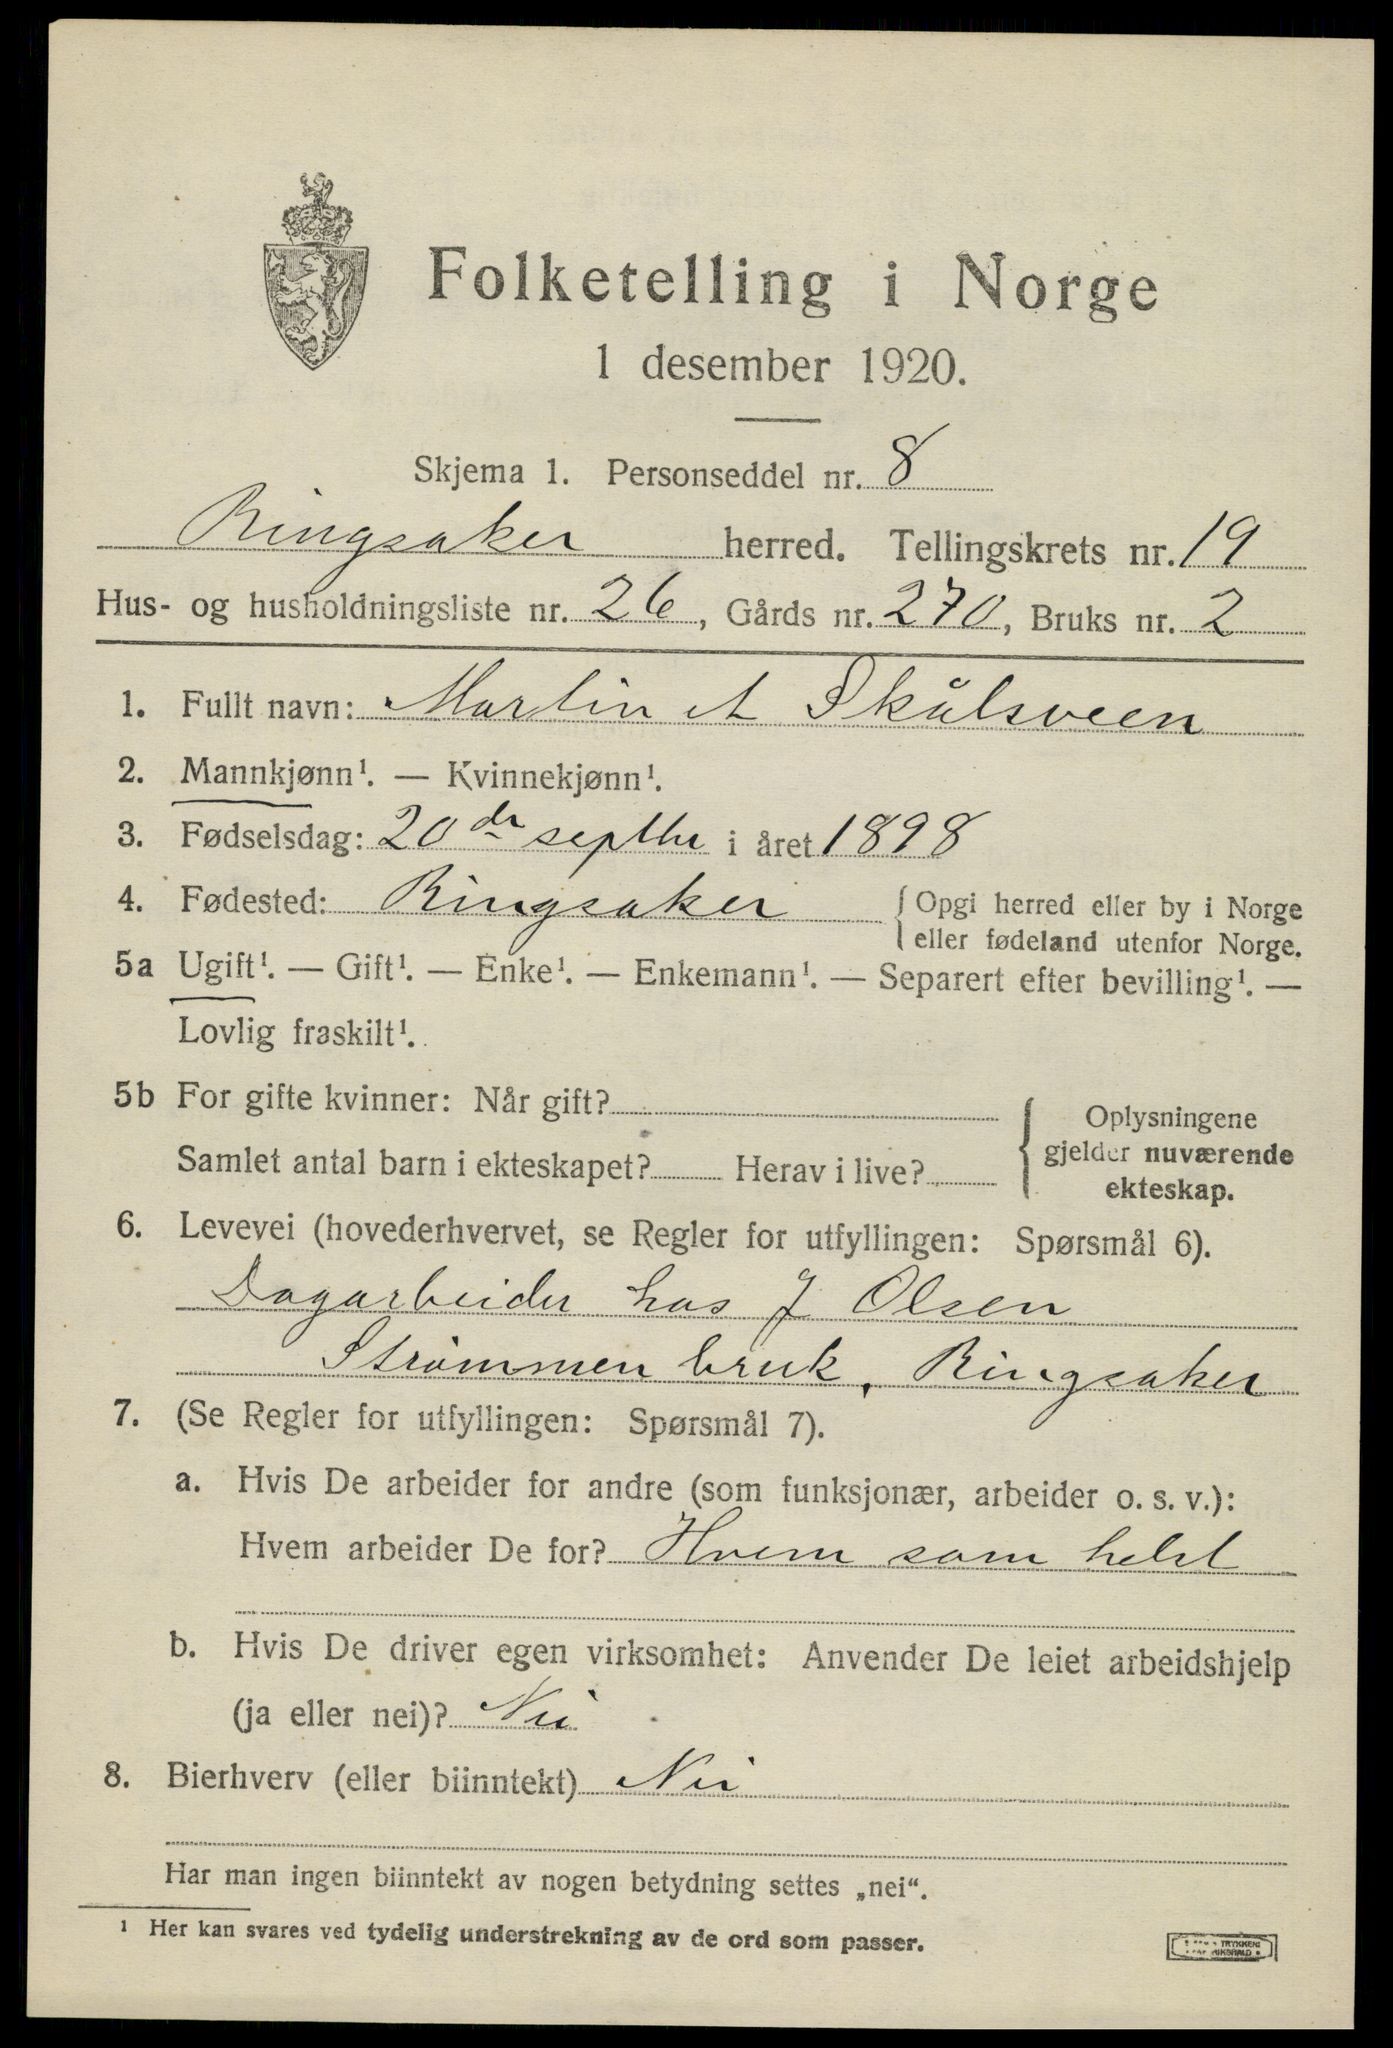 Folketelling i Norge
1 desember 1920.
Skjema 1. Personseddel nr. 8
Ringsaker herred. Tellingskrets nr. 19
Hus- og husholdningsliste nr. 26, Gårds nr. 270, Bruks nr. 2
1. Fullt navn: Martin A Skålsveen
2. Mannkjønn¹. — Kvinnekjønn¹.
3. Fødselsdag: 20 de septbr i året 1898
4. Fødested: Ringsaker { Opgi herred eller by i Norge
eller fødeland utenfor Norge.
5a Ugift¹. — Gift¹. — Enke¹. — Enkemann¹. — Separert efter bevilling¹. —
Lovlig fraskilt¹.
5b For gifte kvinner: Når gift?
Samlet antal barn i ekteskapet? Herav i live?
{ Oplysningene
gjelder nuværende
ekteskap.
6. Levevei (hovederhvervet, se Regler for utfyllingen: Spørsmål 6).
Dagarbeider hos J Olsen
Strømmen bruk, Ringsaker
7. (Se Regler for utfyllingen: Spørsmål 7).
a. Hvis De arbeider for andre (som funksjonær, arbeider o. s. v.):
Hvem arbeider De for? Hvem som helst
b. Hvis De driver egen virksomhet: Anvender De leiet arbeidshjelp
(ja eller nei)? Nei
8. Bierhverv (eller biinntekt) Nei
Har man ingen biinntekt av nogen betydning settes „nei“.
¹ Her kan svares ved tydelig understrekning av de ord som passer.